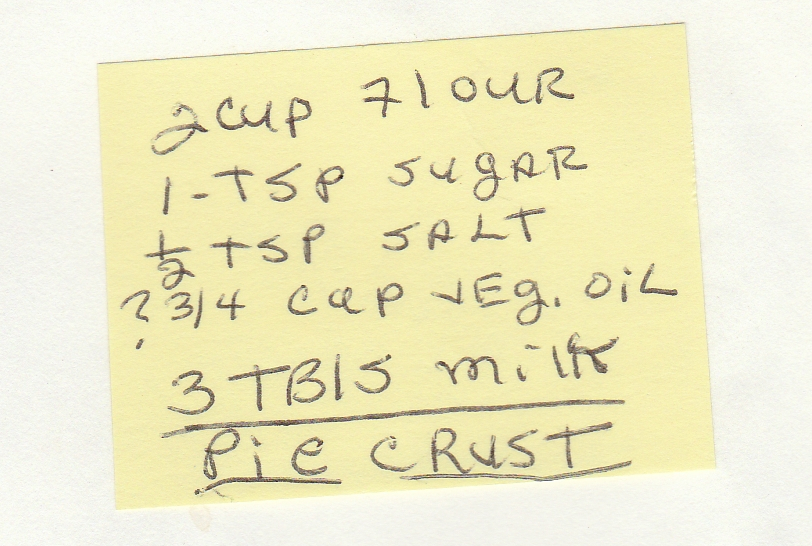 2 CUP FLOUR
1-TSP SUGAR
1/2 TSP SALT
? 3/4 CUP VEG. OIL
3 TBLS MILK
PIE CRUST